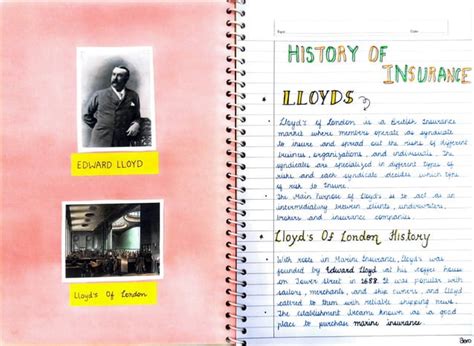 EDWARD LLOYD
Lloyd's Of London
HISTORY OF
INSURANCE
LLOYDS
Lloyd's of London is a British Insurance
market where members operate as syndicate
to insure and spread out the risks of different
business, organizations, and individuals. The
syndicates are specialized in different types of
risks and each syndicate decides which type
of risk to insure.
The Main Purpose of Lloyd's is to act as an
intermediatory between clients, underwriters,
brokers and insurance companies.
Lloyd's Of London History
With roots in Marine Insurance, Lloyd's was
founded by Edward Lloyd at his coffee house
on Tower Street in 1688. It was popular with
sailors, merchants, and ship owners, and Lloyd
catered to them with reliable shipping news.
The establishment became known as a good
place to purchase marine insurance.